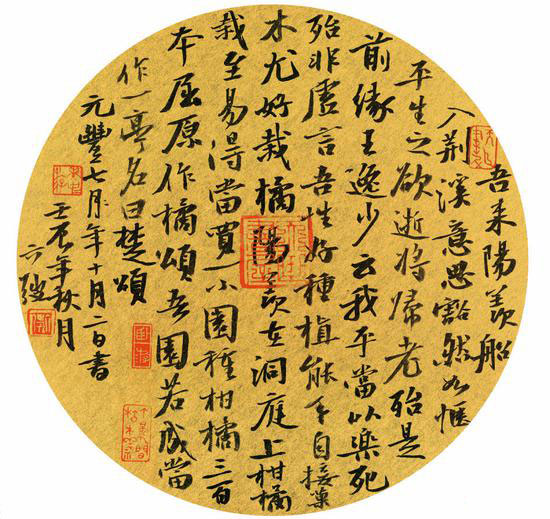 吾来陽羨船
入荆溪意思豁然如愜
平生之欲逝将歸老殆是
前緣王逸少云我平當以樂死
殆非虛言吾性好種植能手自接菓
木尤好栽橘陽羨在洞庭上柑橘
栽至易得當買一小園種柑橘三百
本屈原作橘頌吾園若成當
作一亭名曰楚頌
元豐七月年十月二日書
壬辰年秋月